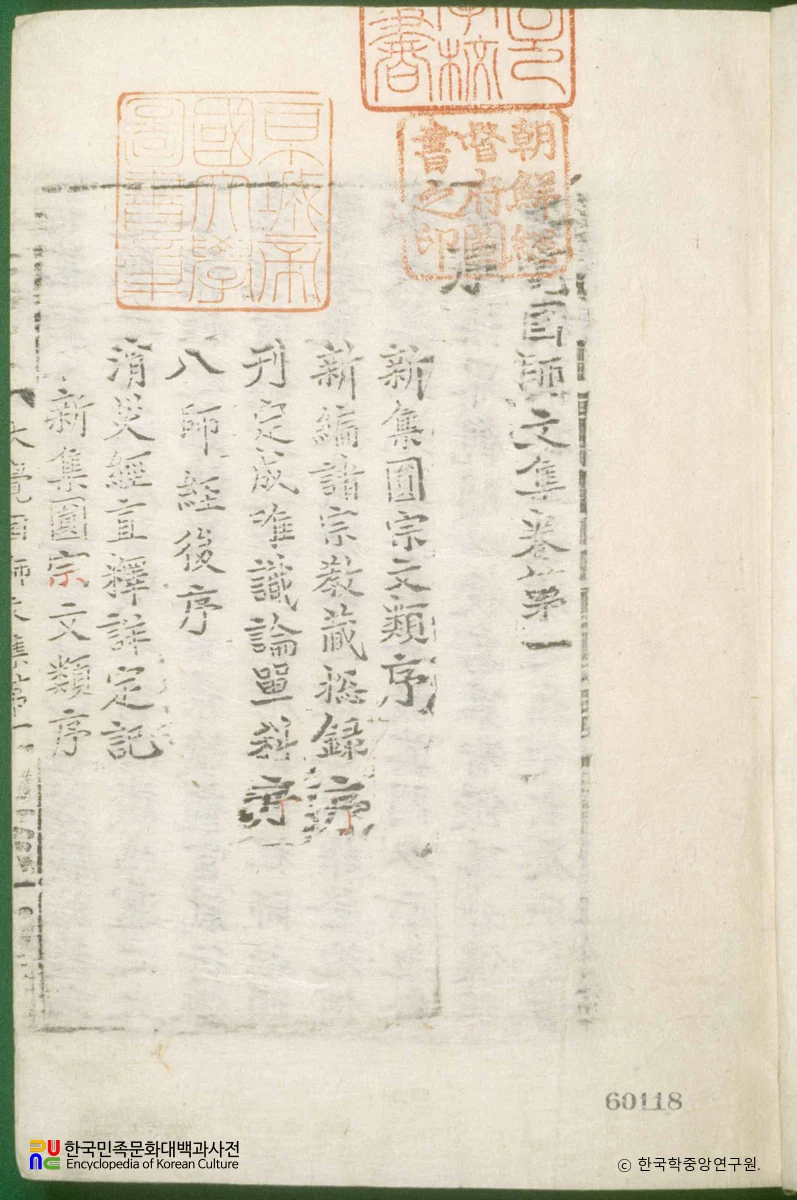 朝鮮總
督府圖
書之印
京城帝
國大學
圖書章
覺國師文集卷第一
序
新集圓宗文類序
新編諸宗教藏揔録序
刊定成唯識論單科序
八師經後序
消災經直釋詳定記
新集圓宗文類序
大覺國師文集第一
60118
한국민족문화대백과사전
Encyclopedia of Korean Culture
ⓒ 한국학중앙연구원.